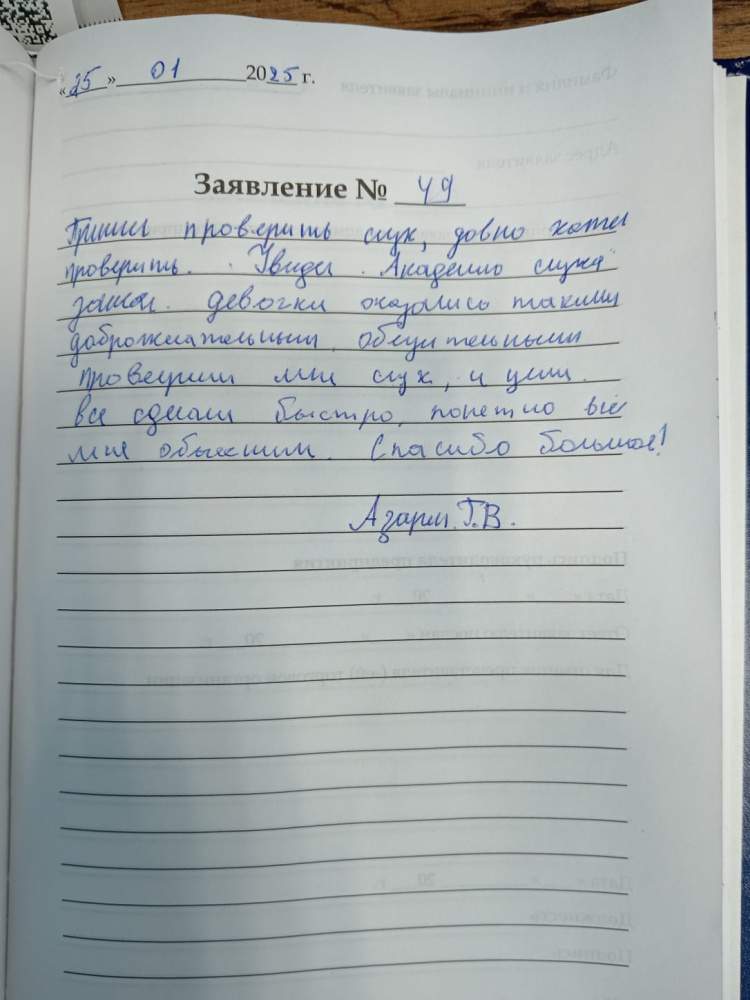 «25» 01 2025 г.
Заявление № 49
Пришли проверить слух, давно хотел
проверить. Увидел Академию слуха
зашел. девочки оказались такими
доброжелательными, общительными
проверили мне слух, и уши.
все сделали быстро, понетно все
мне объяснили. Спасибо большое!
Г.В.